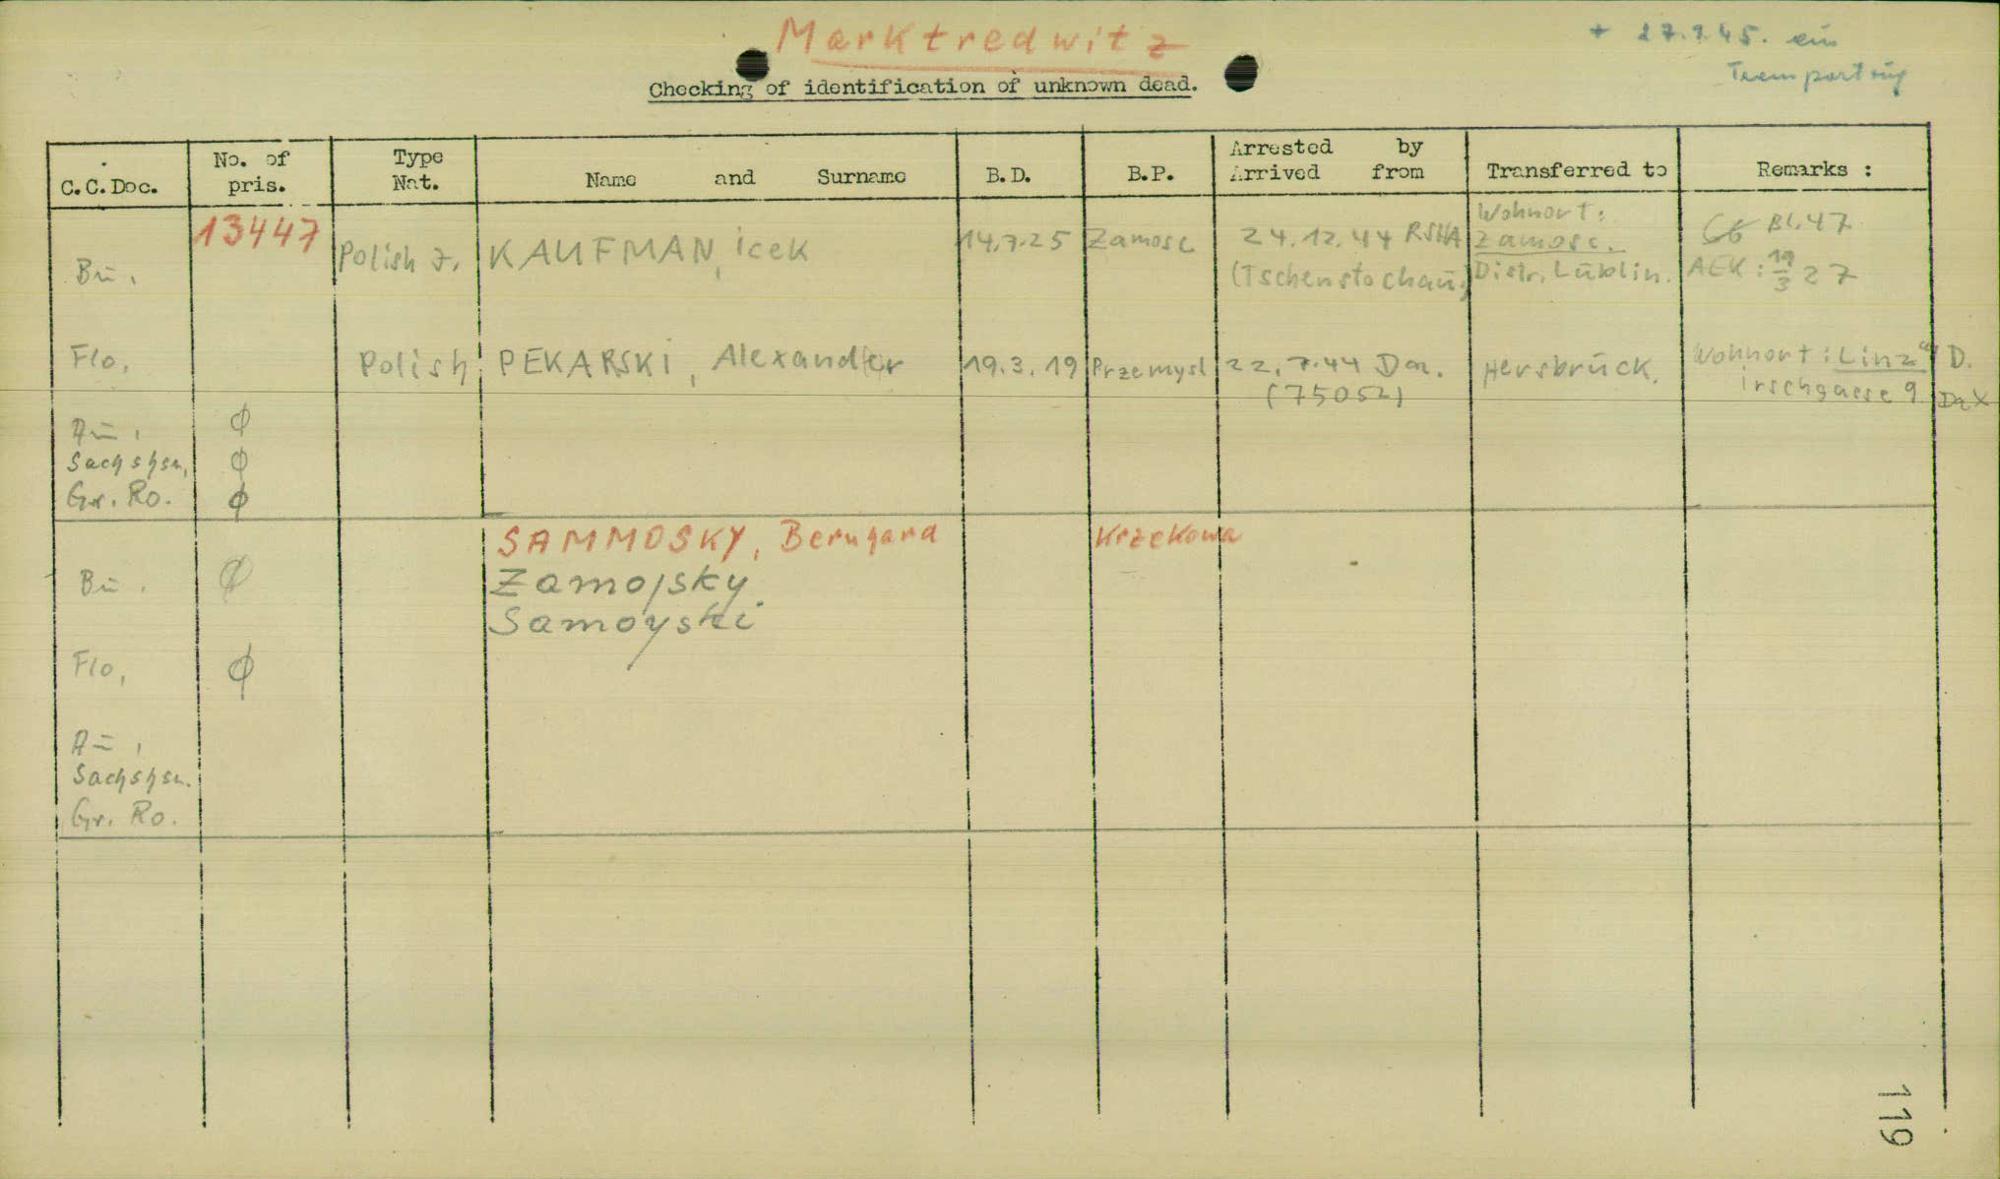 Marktredwitz
+ 27.1.45. ein
Transportzug
Checking of identification of unknown dead.
C.C.Doc. No. of pris. Type Nat. Name and Surname B.D. B.P. Arrested by Arrived from Transferred to Remarks :
Bü. 13447 Polish J. KAUFMAN, icek 14.7.25 Zamosc 24.12.44 RSHA Wohnort: BL.47
(Tschenstochau) Zamosc. Distr. Lüblin. AEK: 19/3 27
Flo. Polish PEKARSKi, Alexander 19.3.19 Przemysl 22.7.44 Da. Hersbrück. Wohnort: Linz a/ D.
(75052) irschgasse 9. Da X
Aü. ϕ
Sachshsn. ϕ
Gr. Ro. ϕ
SAMMOSKY, Bernhard Krzekowa
Bü. ϕ Zamojsky
Samoyski
Flo. ϕ
Aü.
Sachshsn.
Gr. Ro.
119